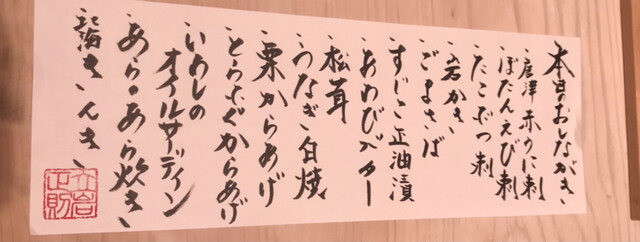 本日のおしながき
、唐津赤うに刺
、ぼたんえび刺
、たこぶつ刺
、岩かき
、ごまさば
、すじこ正油漬
、あわびバター
、松茸
、うなぎ白焼
、栗からあげ
、とらふぐからあげ
、いわしの
オイルサーディン
、あらのあら炊き